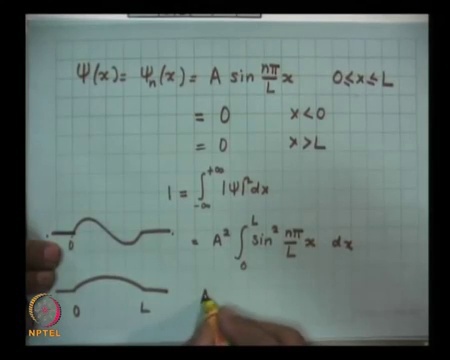 Ψ(x) = Ψₙ(x) = A sin nπ/L x 0≤x≤L
= 0 x<0
= 0 x>L
1 = ∫₋∞⁺∞ |Ψ|² dx
= A² ∫₀ᴸ sin² nπ/L x dx
0
0 L
A
NPTEL